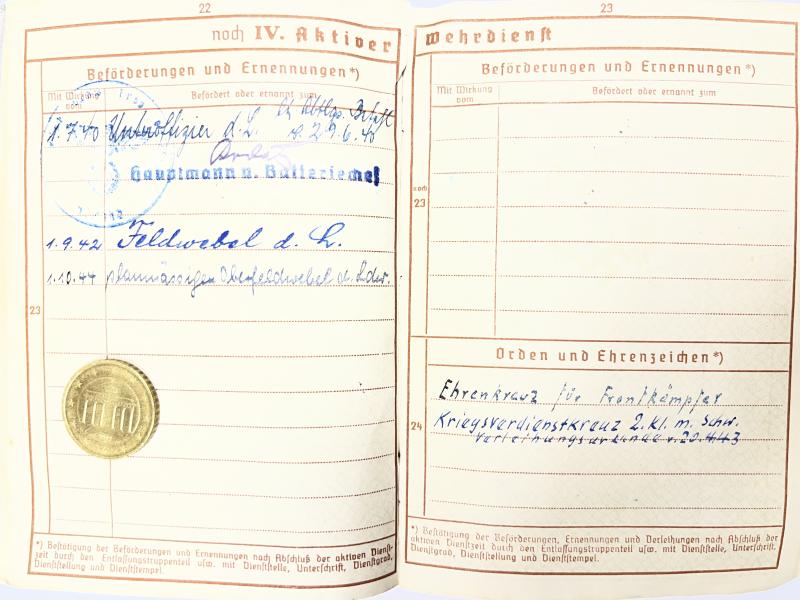 22
noch IV. Aktiver
Beförderungen und Ernennungen*)
Mit Wirkung vom
Befördert oder ernannt zum
1.7.40 Unteroffizier d. L.
29.6.40
Hauptmann u. Batteriechef
1.9.42 Feldwebel d. L.
1.10.44 planmässigen Oberfeldwebel d.
23
*) Bestätigung der Beförderungen und Ernennungen nach Abschluß der aktiven Dienst-
zeit durch den Entlassungstruppenteil usw. mit Dienststelle, Unterschrift, Dienstgrad,
Dienststellung und Dienststempel.
23
wehrdienst
Beförderungen und Ernennungen*)
Mit Wirkung vom
Befördert oder ernannt zum
noch
23
Orden und Ehrenzeichen*)
Ehrenkreuz für Frontkämpfer
Kriegsverdienstkreuz 2. Kl. m. Schw.
Verleihungsurkunde v. 20.4.43
24
*) Bestätigung der Beförderungen, Ernennungen und Verleihungen nach Abschluß der
aktiven Dienstzeit durch den Entlassungstruppenteil usw. mit Dienststelle, Unterschrift,
Dienstgrad, Dienststellung und Dienststempel.